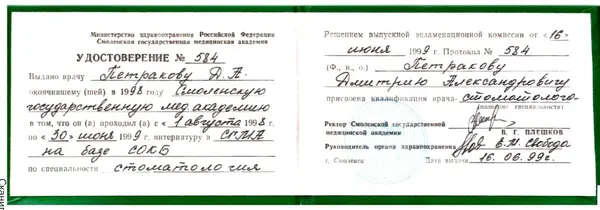 Министерство здравоохранения Российской Федерации
Смоленская государственная медицинская академия
УДОСТОВЕРЕНИЕ № 584
Выдано врачу Петракову Д.А.
окончившему (шей) в 1998 году Смоленскую
государственную мед. академию
в том, что он (а) проходил (а) с « 1 августа 1998 г.
по « 30 » июня 1999 г. интернатуру в СГМА
на базе СОКБ
по специальности стоматология
Решением выпускной экзаменационной комиссии от « 16 »
июня 1999 г. Протокол № 584
(Ф., и., о.) Петракову
Дмитрию Александровичу
присвоена квалификация врача-стоматолога
специальности)
Ректор Смоленской государственной
медицинской академии
В. Г. ПЛЕШКОВ
Руководитель органа здравоохранения В.М. Свобода
г. Смоленск Дата выдачи 16.06.99г.
Скани